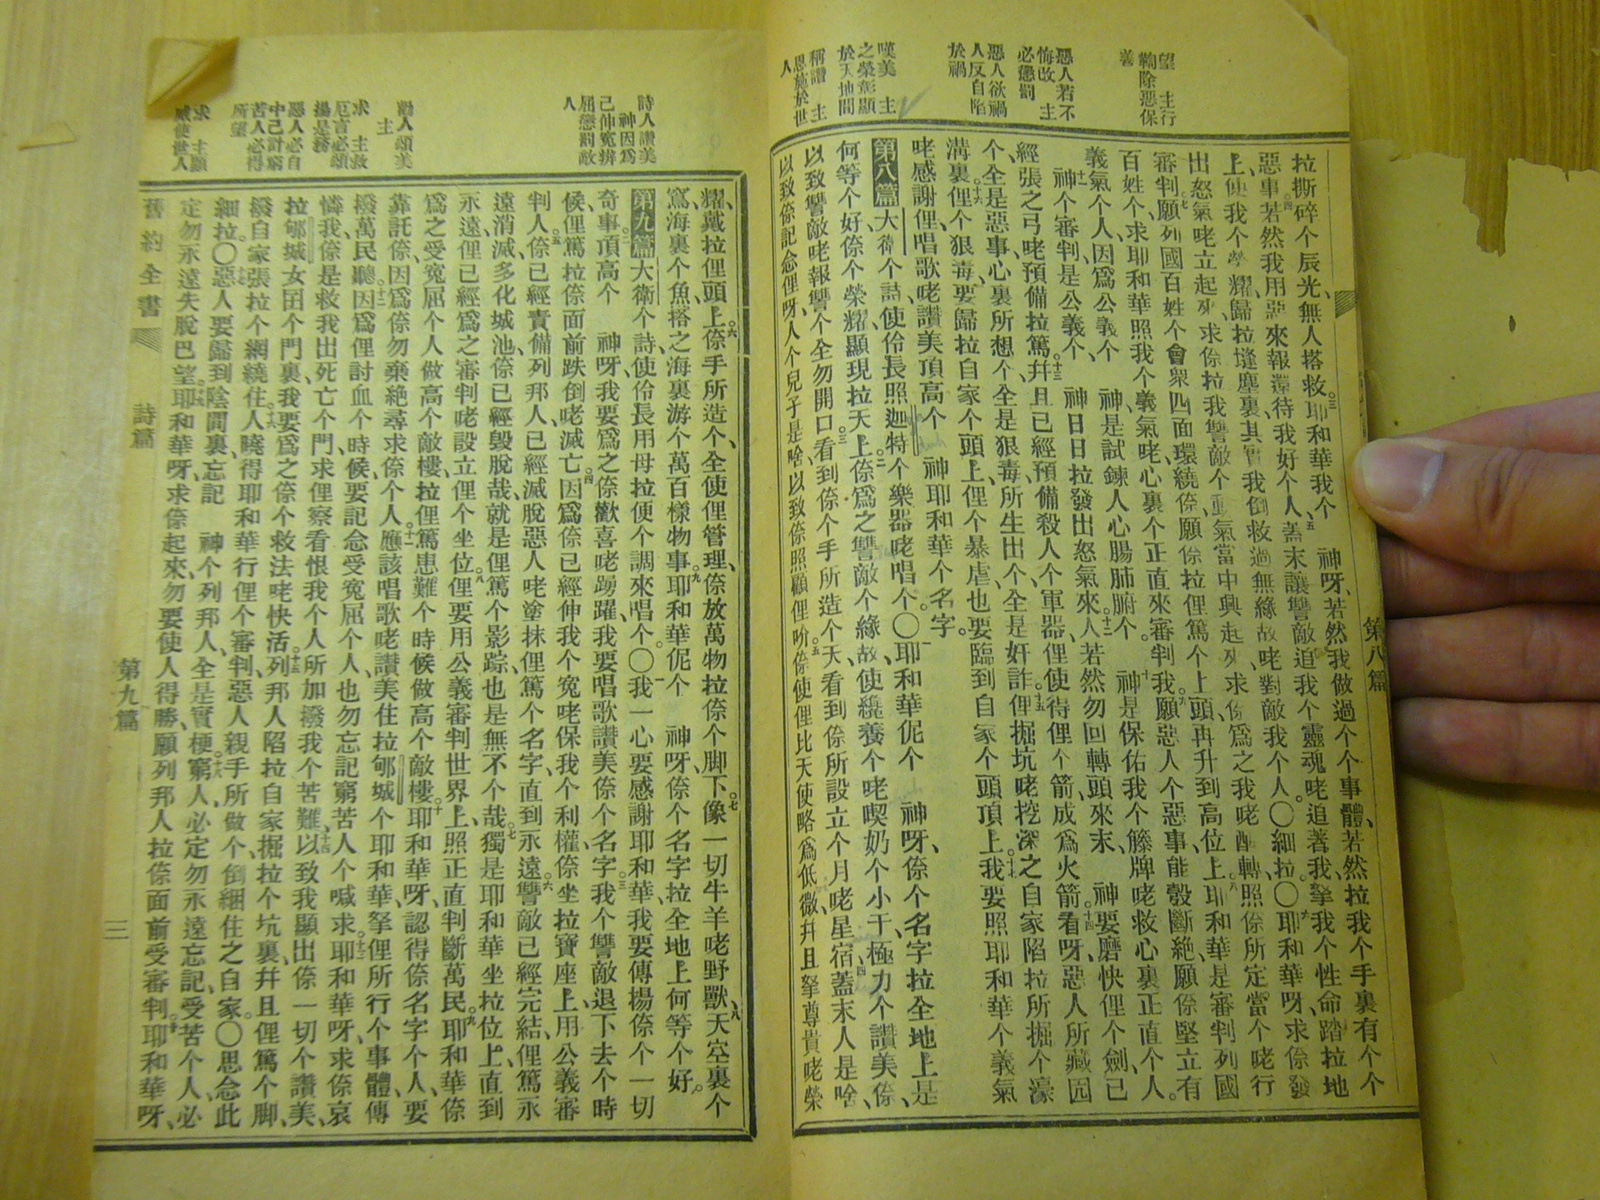 望 主行
鞫除惡保
善
惡人若不
悔改 主
必懲罰
惡人欲禍
人反自陷
於禍
嘆美 主
之榮耀顯
於天地間
稱讚 主
恩施於世
人
第八篇
拉撕碎个辰光無人搭救耶和華我个 神呀若然我做過个个事體若然拉我个手裏有个个
惡事若然我用惡來報還待我好个人蓋末讓讐敵追我个靈魂咾追著我拏我个性命踏拉地
上使我个榮耀歸拉塳塵裏其實我倒救過無緣故咾對敵我个人〇細拉〇耶和華呀求儂發
出怒氣咾立起來求儂拉我讐敵个動氣當中興起來求儂爲之我咾醒轉照儂所定當个咾行
審判願列國百姓个會衆四面環繞儂願儂拉俚篤个上頭再升到高位上耶和華是審判列國
百姓个求耶和華照我个義氣咾心裏个正直來審判我願惡人个惡事能彀斷絕願儂堅立有
義氣个人因爲公義个 神是試鍊人心腸肺腑个 神是保佑我个籐牌咾救心裏正直个人
神个審判是公義个 神日日拉發出怒氣來人若然勿回轉頭來末 神要磨快俚个劍已
經張之弓咾預備拉篤幷且已經預備殺人个軍器俚使得俚个箭成爲火箭看呀惡人所藏囥
个全是惡事心裏所想个全是狠毒所生出个全是奸詐俚掘坑咾挖深之自家陷拉所掘个濠
溝裏俚个狠毒要歸拉自家个頭上俚个暴虐也要臨到自家个頭頂上我要照耶和華个義氣
咾感謝俚唱歌咾讚美頂高个 神耶和華个名字
第八篇 大衛个詩使伶長照迦特个樂器咾唱个〇耶和華伲个 神呀儂个名字拉全地上是
何等个好儂个榮耀顯現拉天上儂爲之讐敵个緣故使纔養个咾喫奶个小干極力个讚美儂
以致讐敵咾報讐个全勿開口看到儂个手所造个天看到儂所設立个月咾星宿蓋末人是啥
以致儂記念俚呀人个兒子是啥以致儂照顧俚呢儂使俚比天使略爲低微幷且拏尊貴咾榮
詩人讚美
神因爲
己伸冤辨
屈懲罰敵
人
勸人頌美
主
求 主救
厄言必頌
揚是務
惡人必自
中己計窮
苦人必得
所望
求 主顯
威使世人
耀戴拉俚頭上儂手所造个全使俚管理儂放萬物拉儂个脚下像一切牛羊咾野獸天空裏个
窵海裏个魚搭之海裏游个萬百樣物事耶和華伲个 神呀儂个名字拉全地上何等个好
第九篇 大衛个詩使伶長用母拉便个調來唱个〇我一心要感謝耶和華我要傳揚儂个一切
奇事頂高个 神呀我要爲之儂歡喜咾踴躍我要唱歌讚美儂个名字我个讐敵退下去个時
候俚篤拉儂面前跌倒咾滅亡因爲儂已經伸我个冤咾保我个利權儂坐拉寶座上用公義審
判人儂已經責備列邦人已經滅脫惡人咾塗抹俚篤个名字直到永遠讐敵已經完結俚篤永
遠消滅多化城池儂已經毀脫哉就是俚篤个影踪也是無不个哉獨是耶和華坐拉位上直到
永遠俚已經爲之審判咾設立俚个坐位俚要用公義審判世界上照正直判斷萬民耶和華儂
爲之受冤屈个人做高个敵樓拉俚篤患難个時候做高个敵樓耶和華呀認得儂名字个人要
靠託儂因爲儂勿棄絕尋求儂个人應該唱歌咾讚美住拉郇城个耶和華拏俚所行个事體傳
撥萬民聽因爲俚討血个時候要記念受冤屈个人也勿忘記窮苦人个喊求耶和華呀求儂哀
憐我儂是救我出死亡个門求俚察看恨我个人所加撥我个苦難以致我顯出儂一切个讚美
拉郇城女囝个門裏我要爲之儂个救法咾快活列邦人陷拉自家掘拉个坑裏幷且俚篤个脚
撥自家張拉个網繞住人曉得耶和華行俚个審判惡人親手所做个倒綑住之自家〇思念此
細拉〇惡人要歸到陰間裏忘記 神个列邦人全是實梗窮人必定勿永遠忘記受苦个人必
定勿永遠失脫巴望耶和華呀求儂起來勿要使人得勝願列邦人拉儂面前受審判耶和華呀
舊約全書 詩篇 第九篇 三